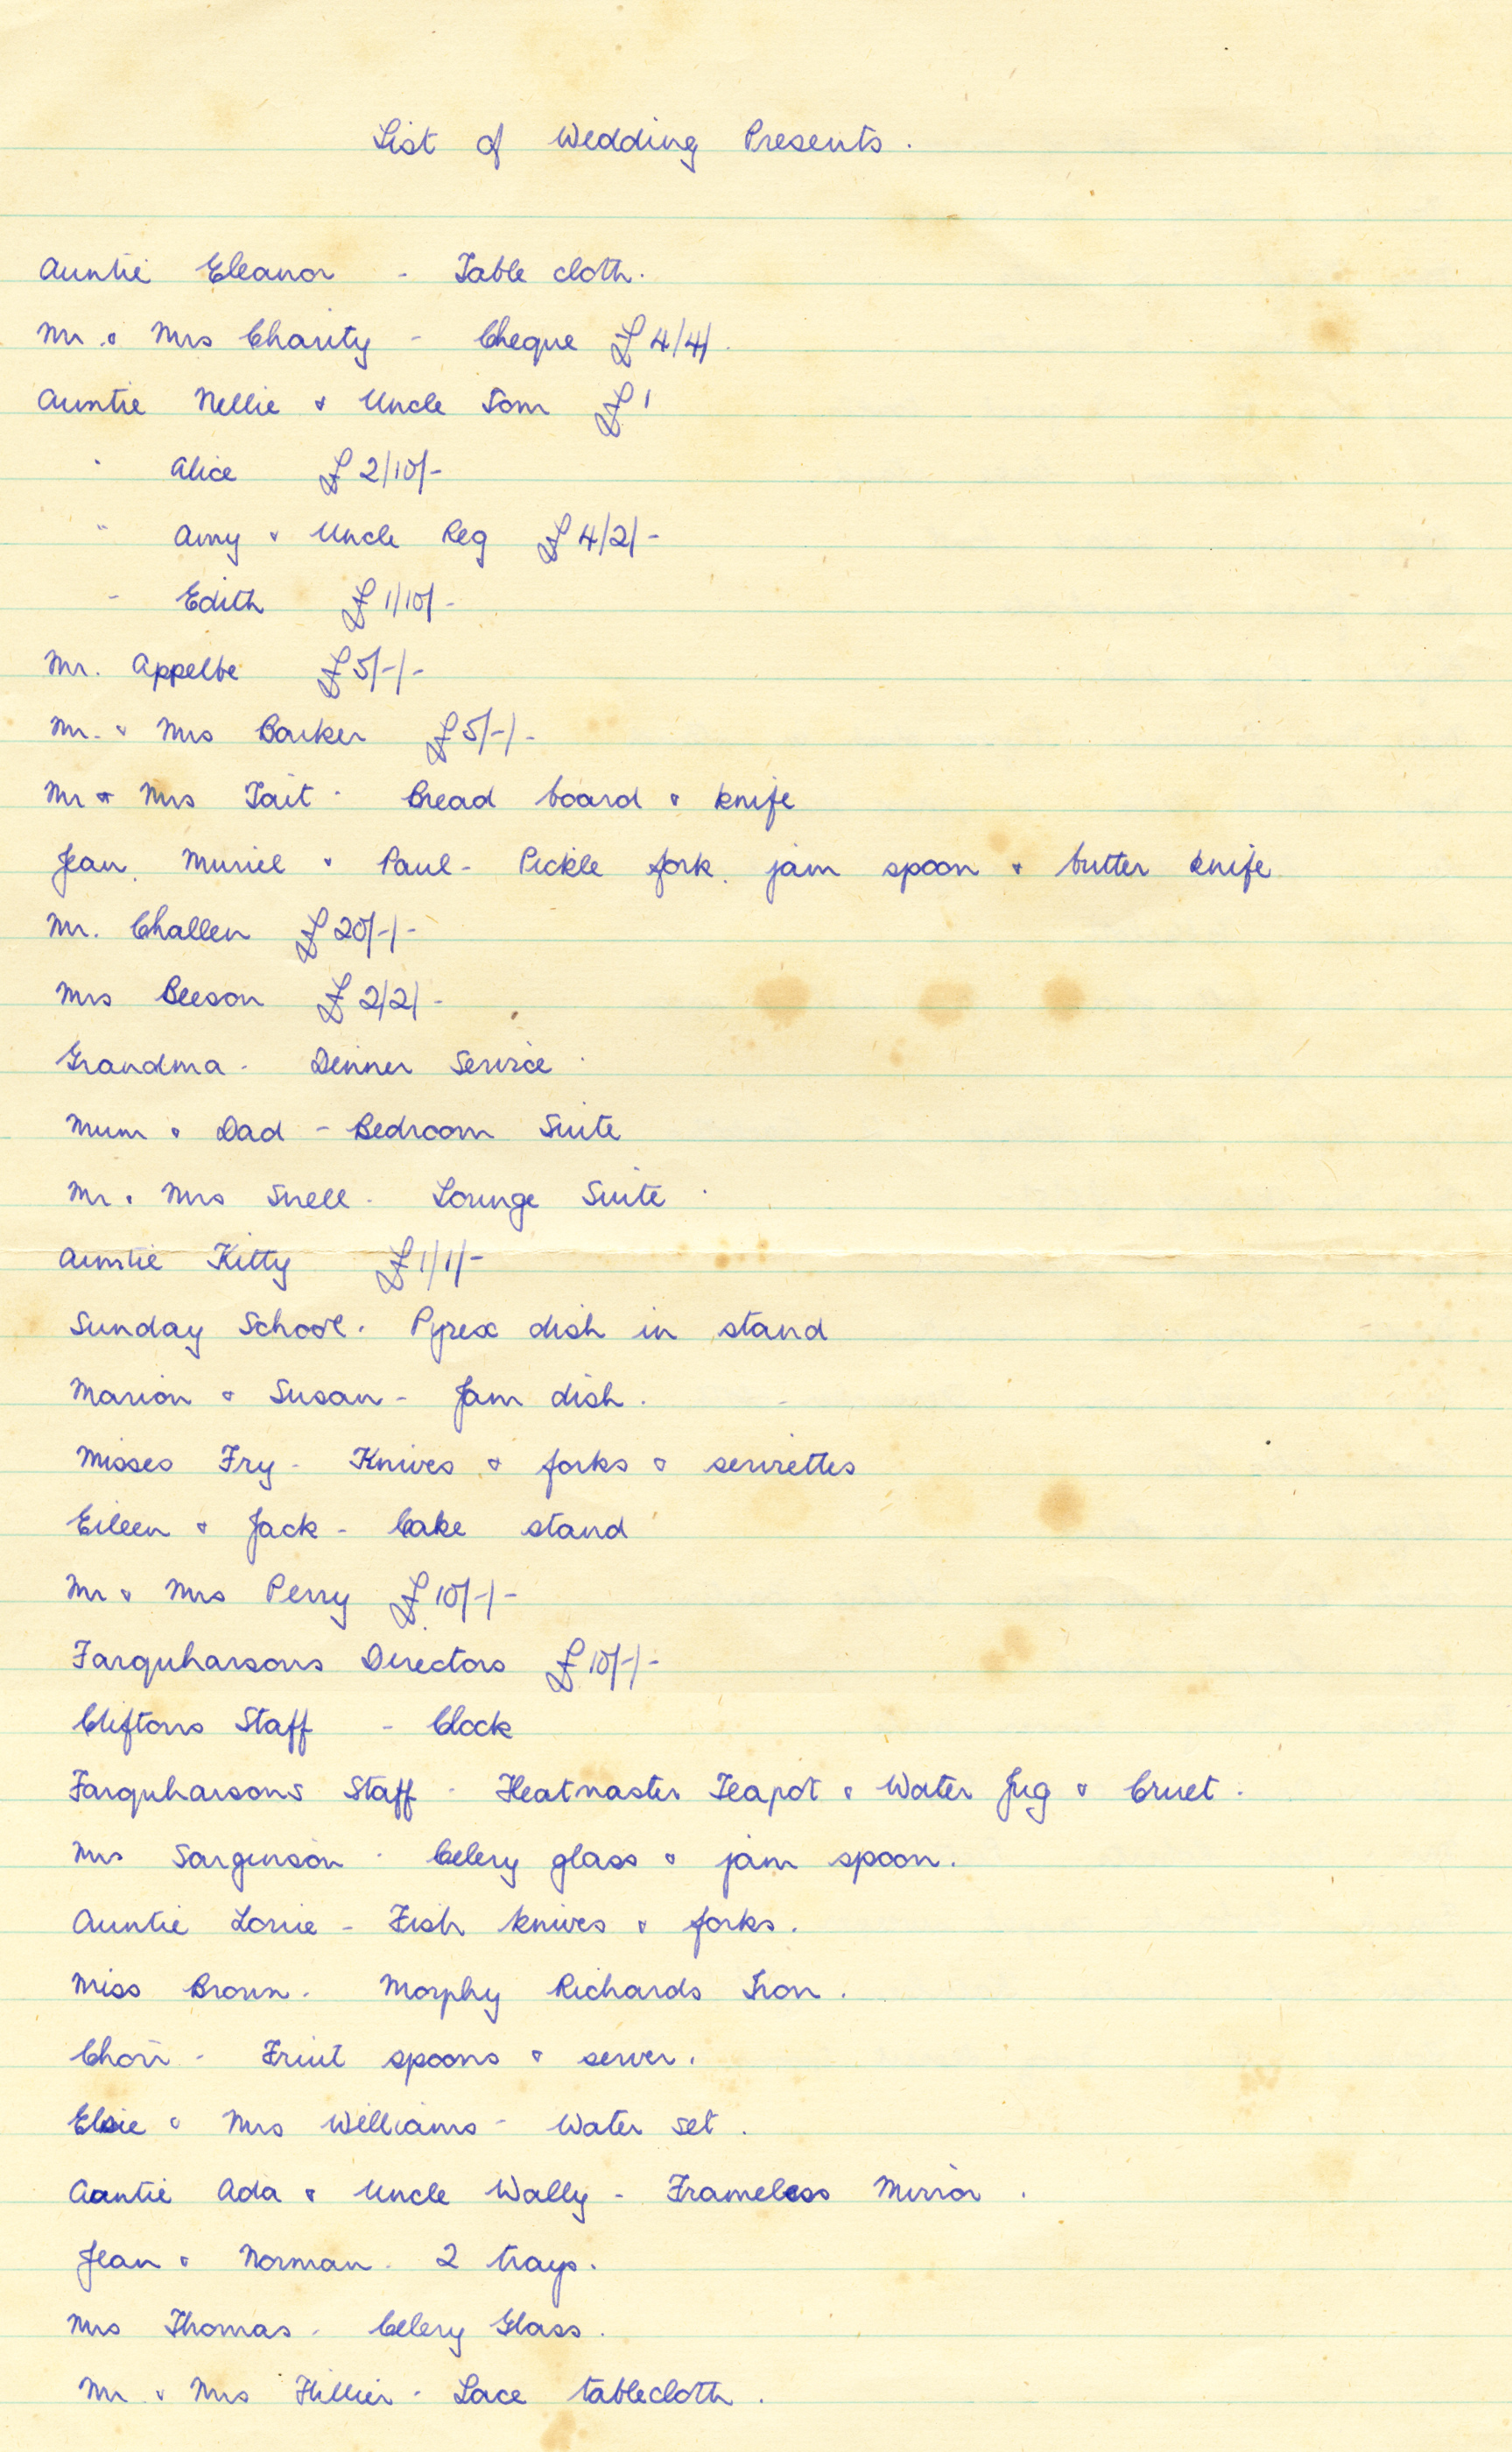 List of Wedding Presents.
Auntie Eleanor - Table cloth.
Mr. & Mrs Charity - Cheque £4/4/.
Auntie Nellie & Uncle Tom £1
" Alice £2/10/-
" Amy & Uncle Reg £4/2/-
" Edith £1/10/-
Mr. Appelbe £5/-/-
Mr. & Mrs Barker £5/-/-
Mr & Mrs Tait - Bread board & knife
Jean, Muriel & Paul - Pickle fork, jam spoon & butter knife
Mr. Challen £20/-/-
Mrs Beeson £2/2/-
Grandma - Dinner Service.
Mum & Dad - Bedroom Suite
Mr & Mrs Snell - Lounge Suite.
Auntie Kitty £1/1/-
Sunday School - Pyrex dish in stand
Marion & Susan - Jam dish.
Misses Fry - Knives & forks & serviettes
Eileen & Jack - Cake stand
Mr & Mrs Perry £10/-/-
Farquharsons Directors £10/-/-
Cliftons Staff - Clock
Farquharsons Staff - Heatmaster Teapot & Water Jug & Cruet.
Mrs Sarginson - Celery glass & jam spoon.
Auntie Lorie - Fish knives & forks.
Miss Brown - Morphy Richards Iron.
Choir - Fruit spoons & server.
Elsie & Mrs Williams - Water set.
Aantie Ada & Uncle Wally - Frameless Mirror.
Jean & Norman - 2 trays.
Mrs Thomas - Celery Glass.
Mr & Mrs Hillier - Lace tablecloth.